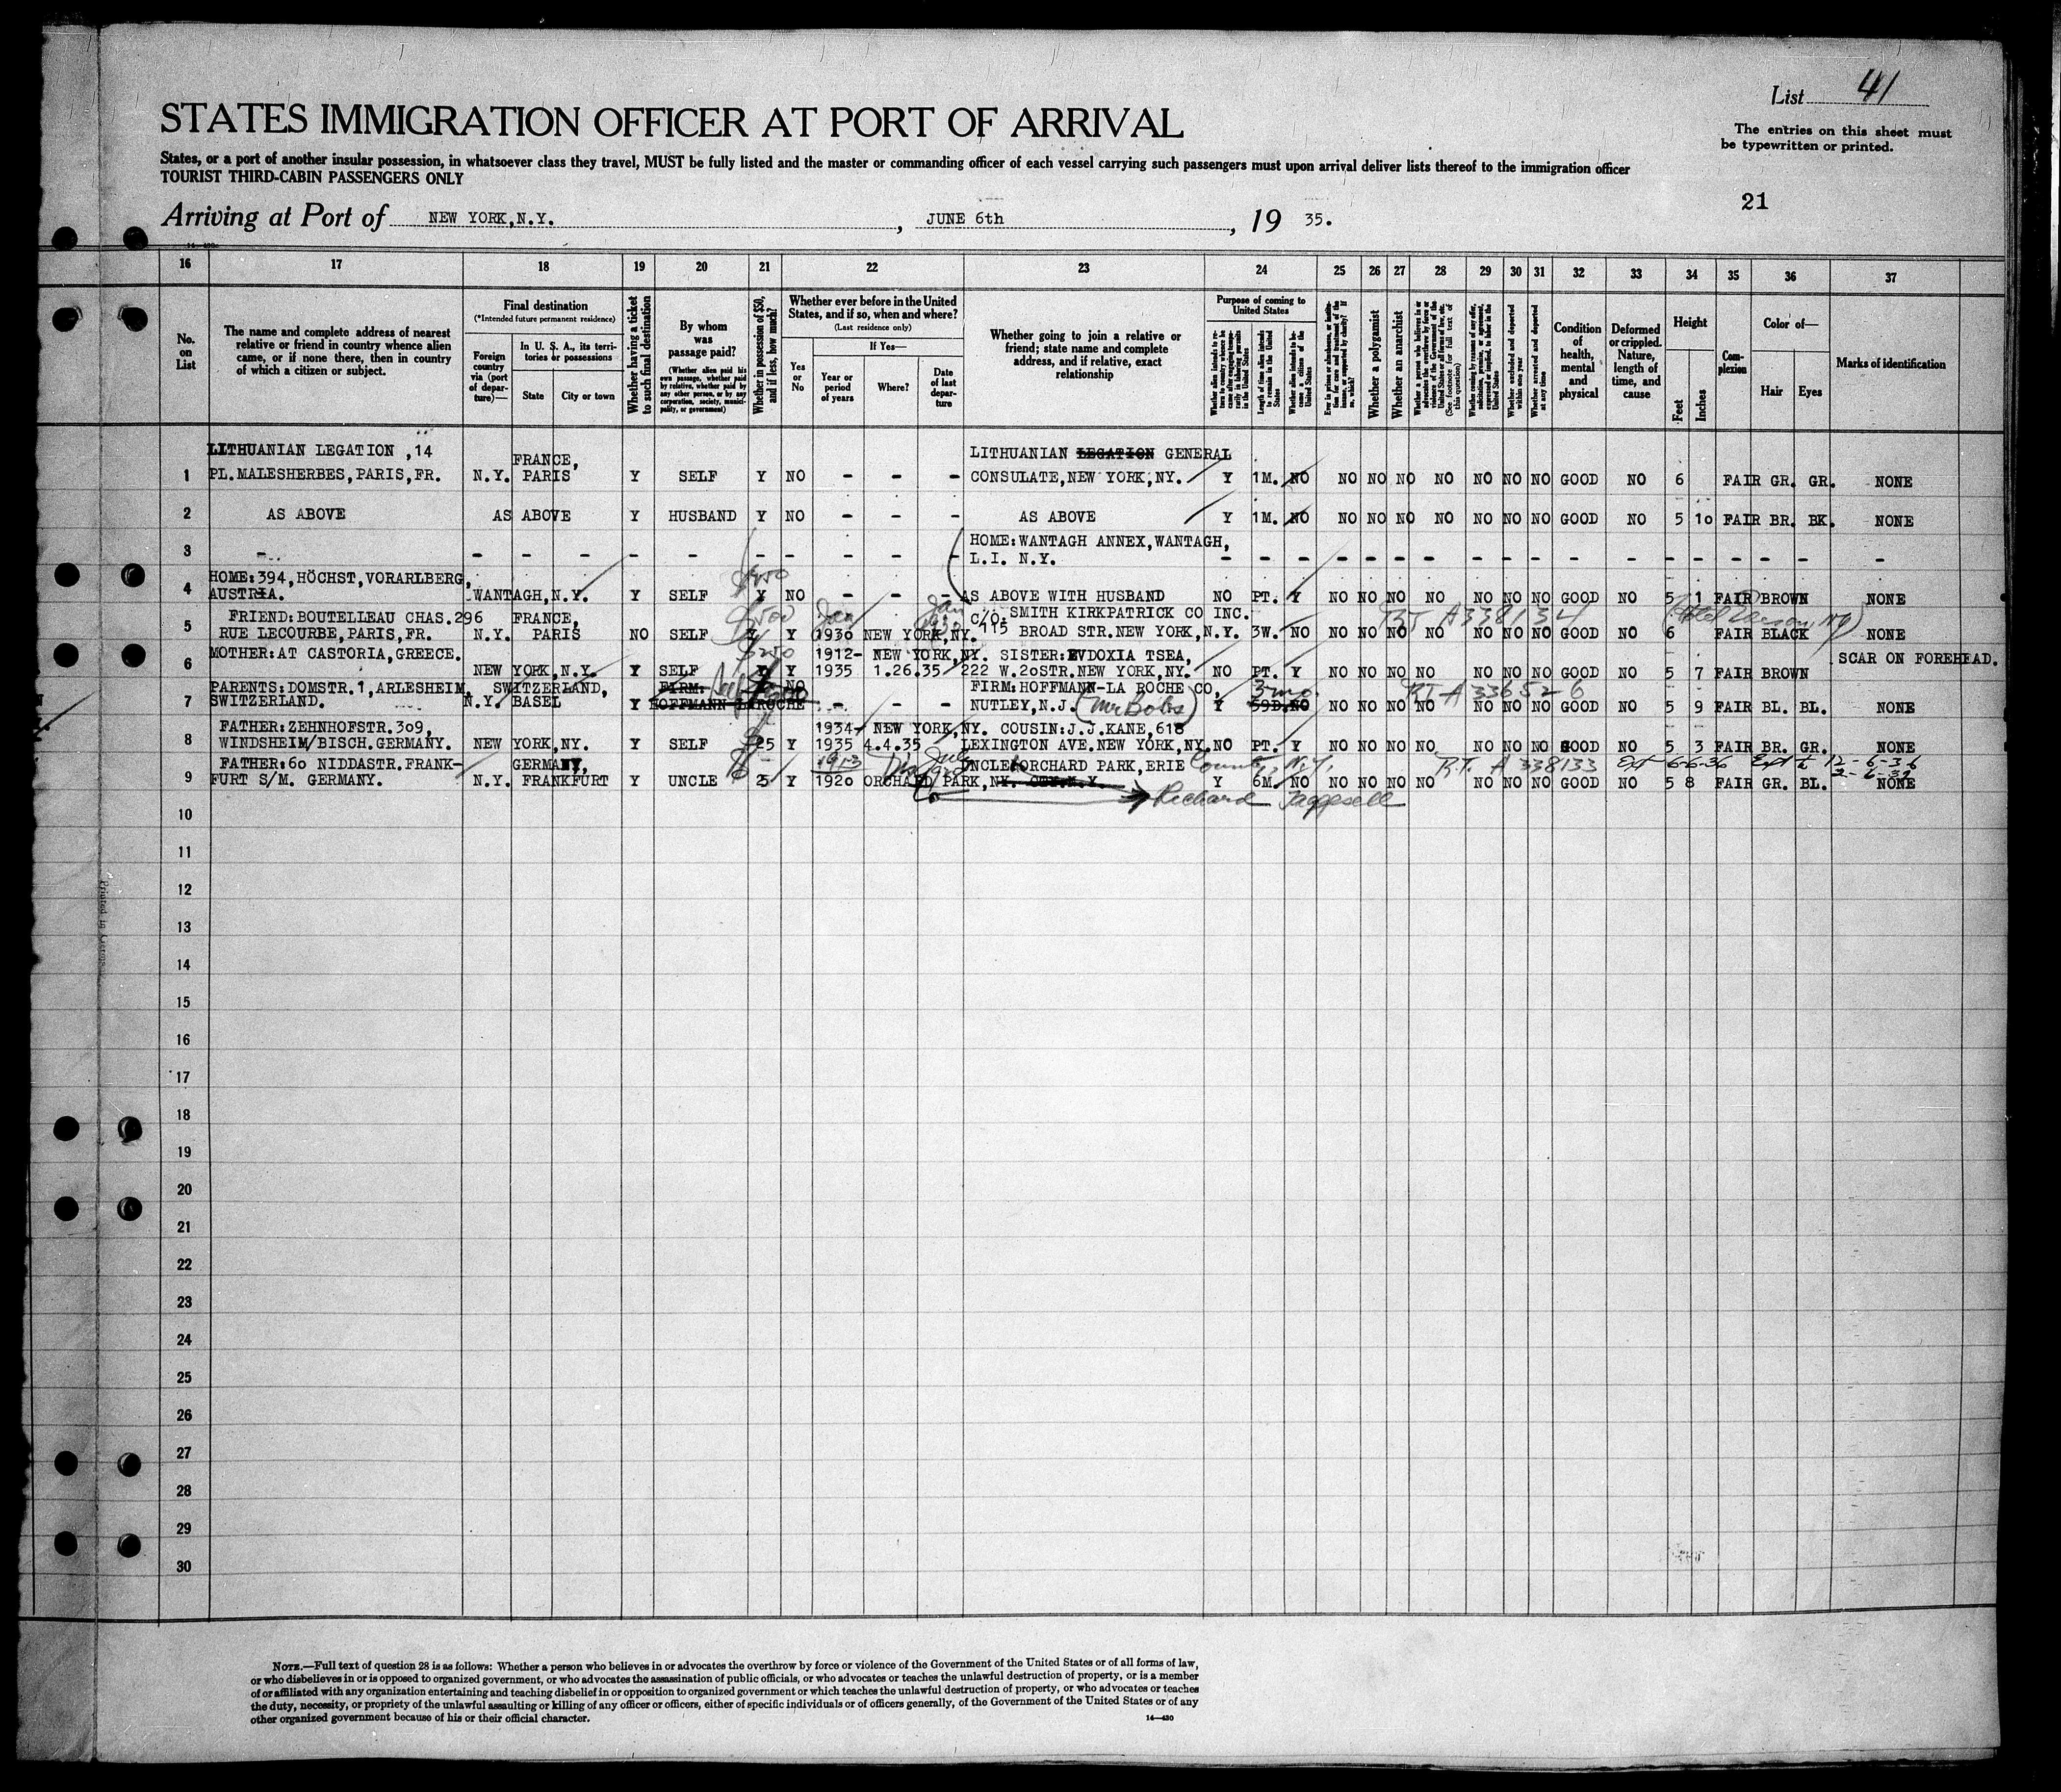 List 41
STATES IMMIGRATION OFFICER AT PORT OF ARRIVAL
The entries on this sheet must
be typewritten or printed.
States, or a port of another insular possession, in whatsoever class they travel, MUST be fully listed and the master or commanding officer of each vessel carrying such passengers must upon arrival deliver lists thereof to the immigration officer
TOURIST THIRD-CABIN PASSENGERS ONLY
21
Arriving at Port of NEW YORK,N.Y. , JUNE 6th , 19 35.
16 17 18 19 20 21 22 23 24 25 26 27 28 29 30 31 32 33 34 35 36 37
No. on List
The name and complete address of nearest
relative or friend in country whence alien
came, or if none there, then in country
of which a citizen or subject.
Final destination
(*Intended future permanent residence)
Foreign country via (port of departure)—
In U. S. A., its territories or possessions
State
City or town
Whether having a ticket to such final destination
By whom was passage paid?
(Whether alien paid his own passage, whether paid by relative, whether paid by any other person, or by any corporation, society, municipality, or government)
Whether in possession of $50, and if less, how much?
Whether ever before in the United
States, and if so, when and where?
(Last residence only)
Yes or No
If Yes—
Year or period of years
Where?
Date of last departure
Whether going to join a relative or
friend; state name and complete
address, and if relative, exact
relationship
Purpose of coming to United States
Length of time alien intends to remain in the United States
Whether a polygamist
Whether an anarchist
Whether excluded and deported within one year
Whether arrested and deported at any time
Condition of health, mental and physical
Deformed or crippled. Nature, length of time, and cause
Height
Feet
Inches
Complexion
Color of—
Hair
Eyes
Marks of identification
LITHUANIAN LEGATION ,14 FRANCE, LITHUANIAN LEGATION GENERAL
1 PL.MALESHERBES,PARIS,FR. N.Y. PARIS Y SELF Y NO - - - CONSULATE,NEW YORK,NY. Y 1M. NO NO NO NO NO NO NO NO GOOD NO 6 FAIR GR. GR. NONE
2 AS ABOVE AS ABOVE Y HUSBAND Y NO - - - AS ABOVE Y 1M. NO NO NO NO NO NO NO NO GOOD NO 5 1o FAIR BR. BK. NONE
HOME:WANTAGH ANNEX,WANTAGH,
3 - - - - - - - - - - - L.I. N.Y. - - - - - - - - - - - - - - - - - -
HOME:394,HÖCHST,VORARLBERG, $450
4 AUSTRIA. WANTAGH,N.Y. Y SELF Y NO - - - AS ABOVE WITH HUSBAND NO PT. Y NO NO NO NO NO NO NO GOOD NO 5 1 FAIR BROWN NONE
FRIEND:BOUTELLEAU CHAS.296 FRANCE, $500 Jan Jan C/O. SMITH KIRKPATRICK CO INC. RT A338134
5 RUE LECOURBE,PARIS,FR. N.Y. PARIS NO SELF Y Y 193o NEW YORK,NY. 115 BROAD STR.NEW YORK,N.Y. 3W. NO NO NO NO NO NO NO NO GOOD NO 6 FAIR BLACK NONE
MOTHER:AT CASTORIA,GREECE. $250 1912- NEW YORK,NY. SISTER:EVDOXIA TSEA, SCAR ON FOREHEAD.
6 NEW YORK,N.Y. Y SELF Y Y 1935 1.26.35 222 W.2oSTR.NEW YORK,NY. NO PT. Y NO NO NO NO NO NO NO GOOD NO 5 7 FAIR BROWN
PARENTS:DOMSTR.1,ARLESHEIM, SWITZERLAND, FIRM: Self NO FIRM:HOFFMANN-LA ROCHE CO, 3 mo. RT A 336526
7 SWITZERLAND. N.Y. BASEL Y HOFFMANN LAROCHE - - - NUTLEY,N.J. (Mr Bobs) Y 59D.NO NO NO NO NO NO NO NO GOOD NO 5 9 FAIR BL. BL. NONE
FATHER:ZEHNHOFSTR.3o9, 1934- NEW YORK,NY. COUSIN:J.J.KANE,618
8 WINDSHEIM/BISCH.GERMANY. NEW YORK,NY. Y SELF 25 Y 1935 4.4.35 LEXINGTON AVE.NEW YORK,NY. NO PT. Y NO NO NO NO NO NO NO GOOD NO 5 3 FAIR BR. GR. NONE
FATHER:6o NIDDASTR.FRANK- GERMANY, 1913 UNCLE ORCHARD PARK,ERIE County, N.Y. R.T. A 338133 Ext 6-6-36 Ext to 12-6-36
9 FURT S/M. GERMANY. N.Y. FRANKFURT Y UNCLE 25 Y 192o ORCHARD PARK,NY. CTY.N.Y. Y 6M. NO NO NO NO NO NO NO NO GOOD NO 5 8 FAIR GR. BL. NONE
Richard
10
11
12
13
14
15
16
17
18
19
20
21
22
23
24
25
26
27
28
29
30
NOTE.—Full text of question 28 is as follows: Whether a person who believes in or advocates the overthrow by force or violence of the Government of the United States or of all forms of law,
or who disbelieves in or is opposed to organized government, or who advocates the assassination of public officials, or who advocates or teaches the unlawful destruction of property, or is a member
of or affiliated with any organization entertaining and teaching disbelief in or opposition to organized government or which teaches the unlawful destruction of property, or who advocates or teaches
the duty, necessity, or propriety of the unlawful assaulting or killing of any officer or officers, either of specific individuals or of officers generally, of the Government of the United States or of any
other organized government because of his or their official character.
14—430